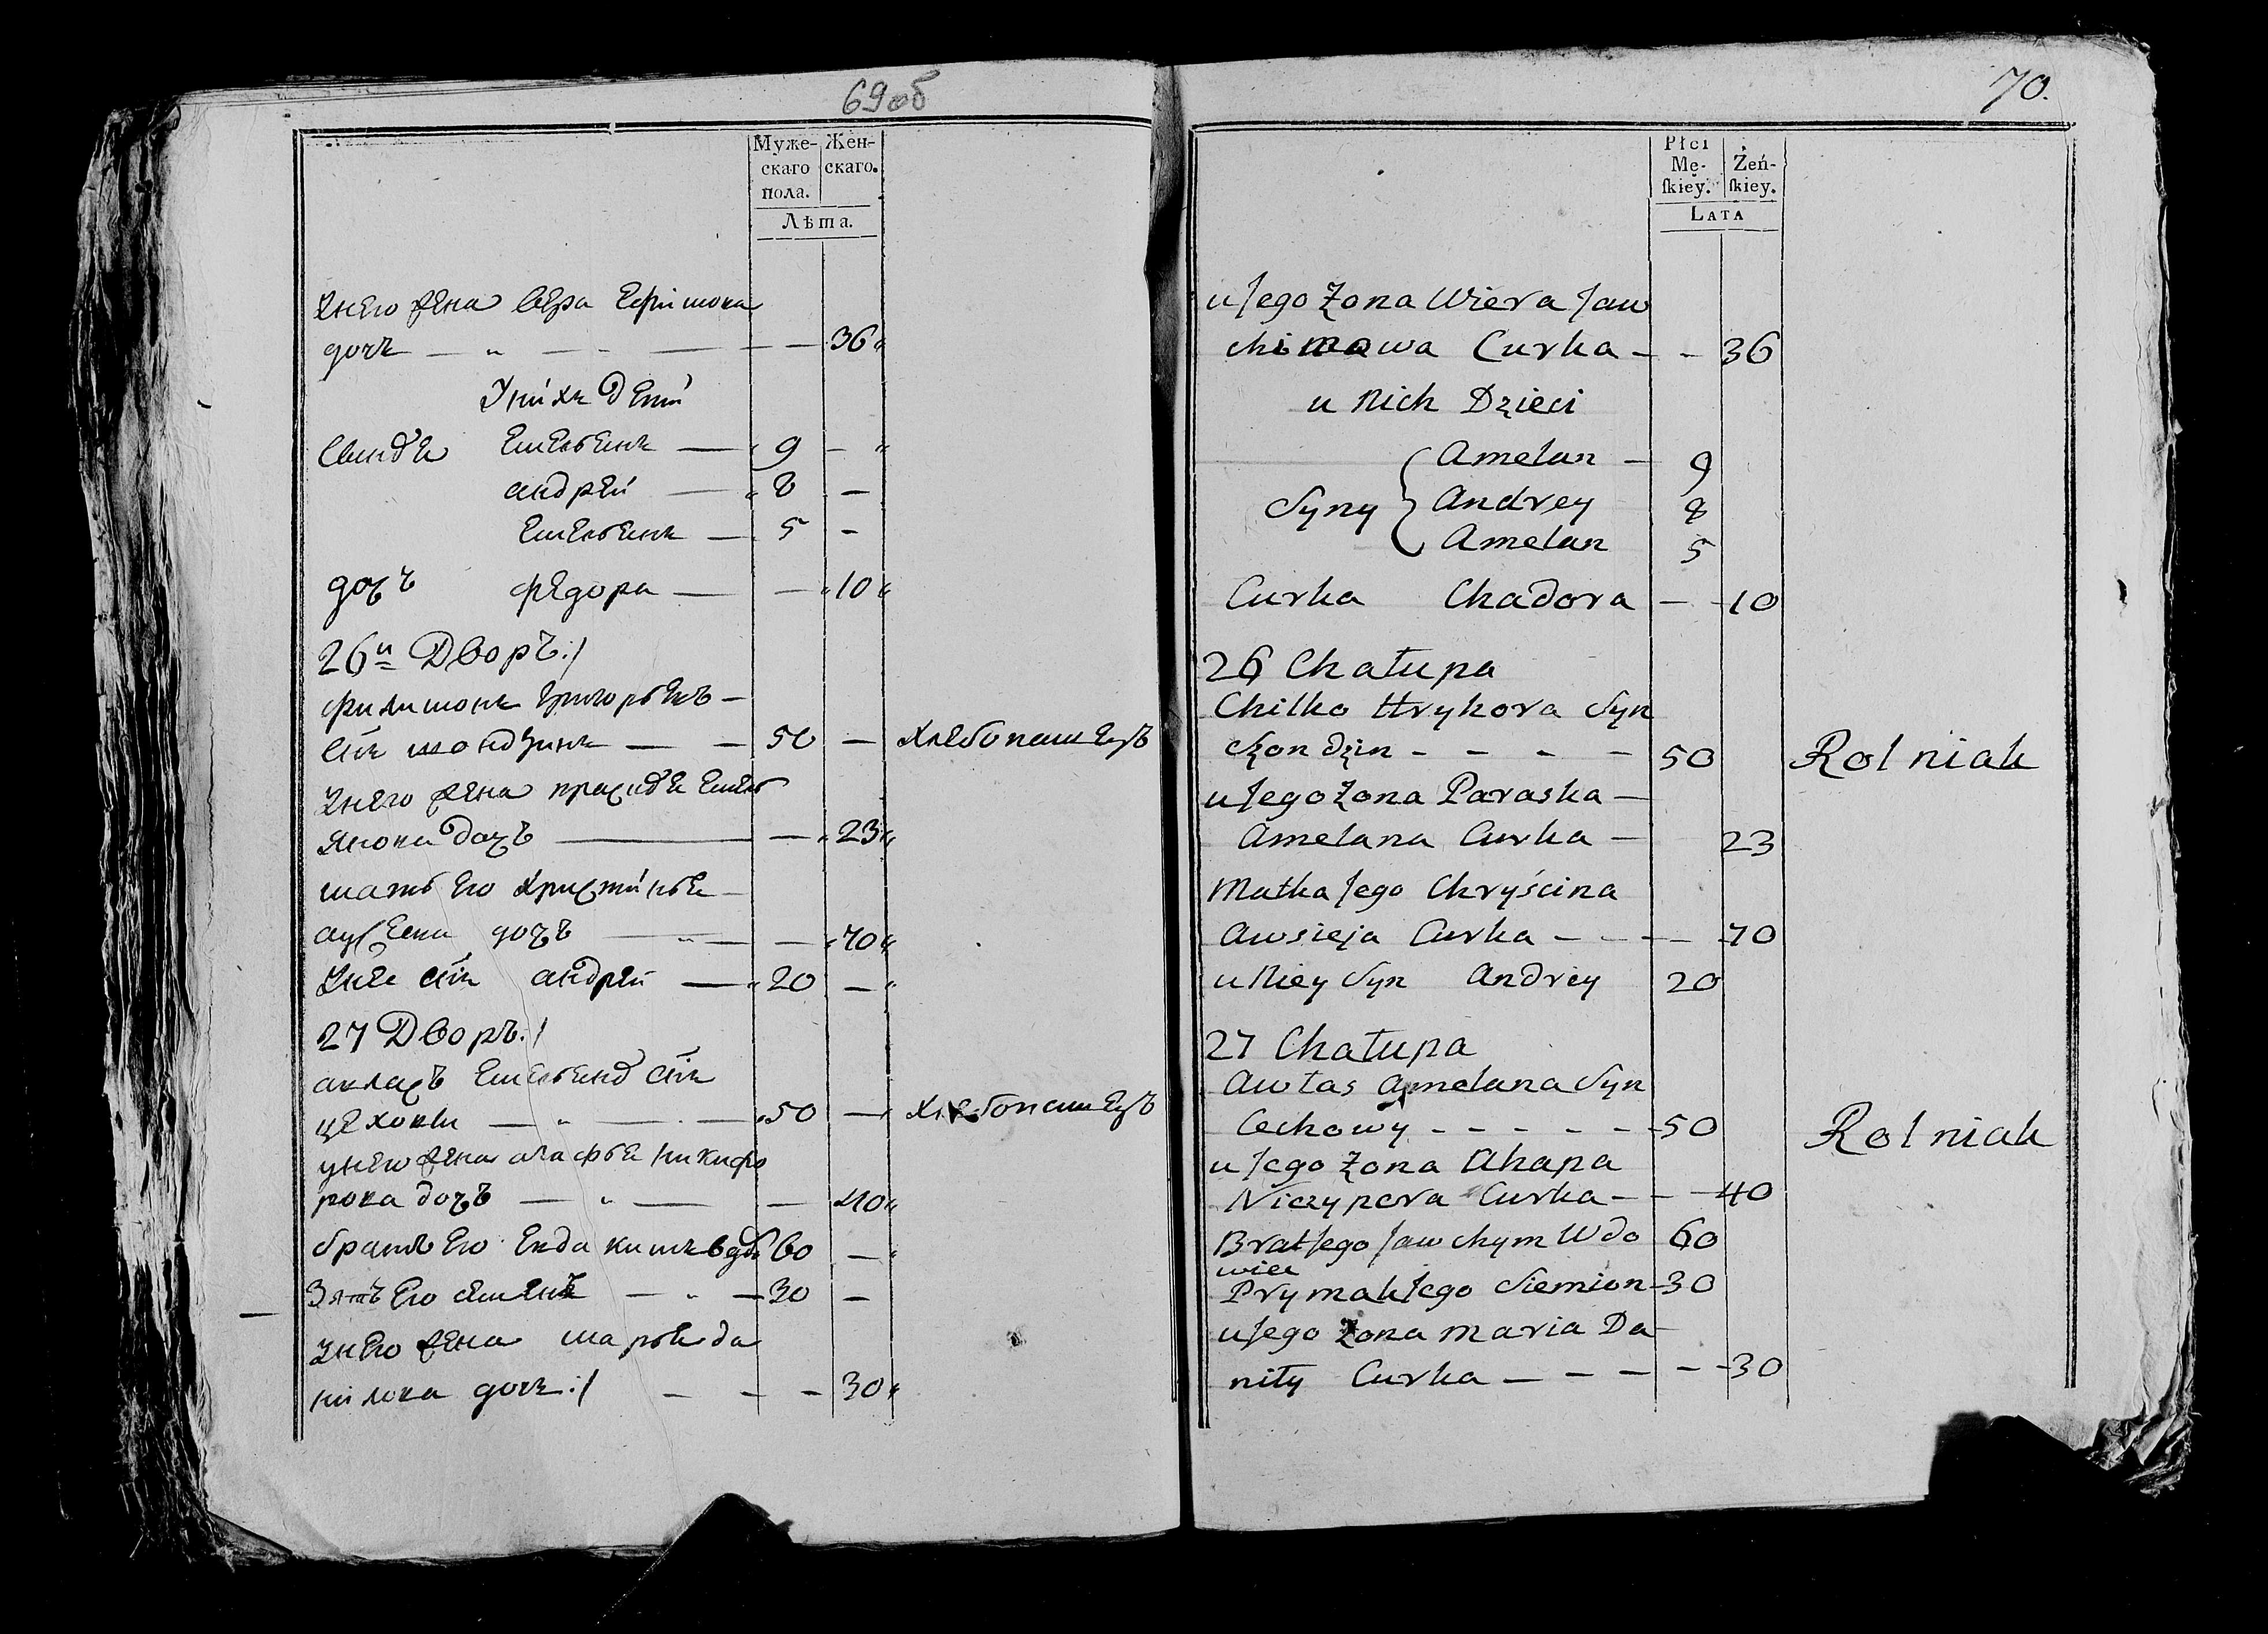 69об
Муже- Жен-
скаго скаго.
пола.
Лѣта.
Унего жена Вера Ефимова
дочь — „ — - — — — 36„
Унихъ дети
Емельянъ — 9 — „
андрей — 8 —
Емельянъ — 5 —
дочъ федора — — 10„
26й Дворъ:/
филимонъ григорьевъ —
снъ шондзинъ — — 50 — хлебопашецъ
Унего жена праскевье Емель
янова дочъ — — 23„
мать его христинье
авсеева дочъ — „ — — 70„
Унее снъ андрей — 20 — „
27 Дворъ:/
авласъ Емельянова снъ
цехови — „ — - — 50 — хлебопашецъ
унего жена агафье никифо
рова дочъ — „ — — 40„
братъ его Евдакимъ вдов 60 — „
Зять его семенъ — „ — 30 —
Унего жена марья да
нилова дочь:/ — — — 30„
70.
Płci
Mę- Żeń-
ſkiey. ſkiey.
LATA
u Jego Żona Wiera Jaw
chimowa Curka - - 36
u Nich Dzieci
Amelan - 9
Syny { Andrey 8
Amelan 5
Curka Chadora - - 10
26 Chałupa
Chilko Hrykora Syn
Szondzin - - - - 50 Rolniak
u Jego Żona Paraska -
Amelana Curka - 23
Matka Jego Chryścina
Awsieja Curka - - - - 70
u Niey Syn Andrey 20
27 Chałupa
Awłas Amelana Syn
Cechowy - - - - - - 50 Rolniak
u Jego Żona Ahapa
Niczypora Curka - - - 40
Brat Jego Jawchym Wdo 60
wiec
Prymak Jego Siemion - 30
u Jego Żona Maria Da
niły Curka - - - - - 30